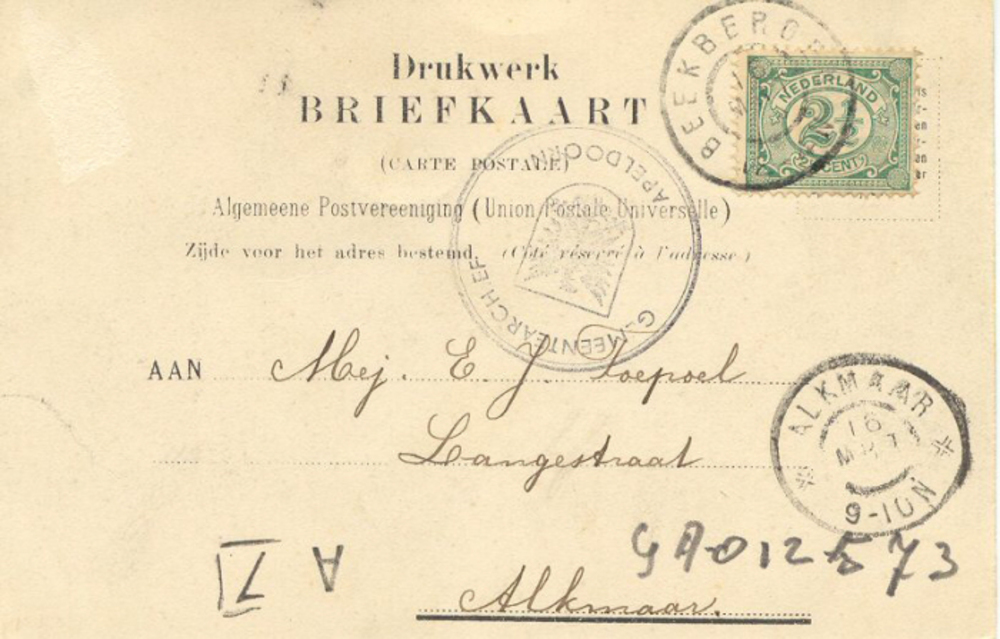 Drukwerk
BRIEFKAART
(CARTE POSTALE)
Algemeene Postvereeniging (Union Postale Universelle)
Zijde voor het adres bestemd. (Côté réservé à l'adresse)
NEDERLAND
2½
(2½ CENT)
GEMEENTEARCHIEF APELDOORN
AAN Mej. E. J. Toepoel
Langestraat
Alkmaar.
ALKMAAR
16
MRT
9-10N
GA012573
A 7